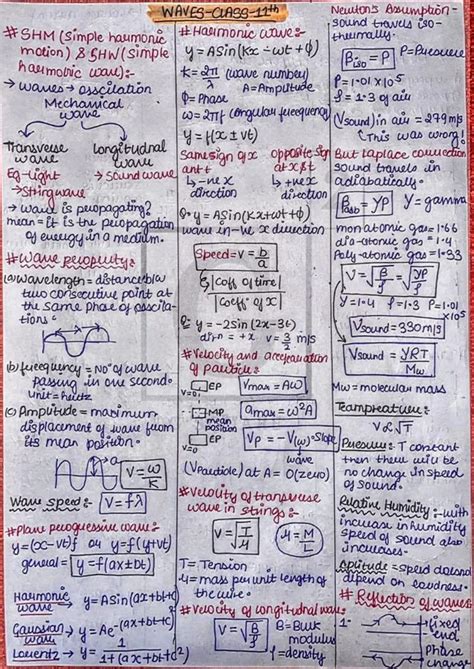 WAVES-CLASS-11th
# SHM (Simple harmonic
motion) & SHW (Simple
harmonic wave):-
→ waves → osscilation
Mechanical
wave
Transverse
wave
Longitudnal
wave
Eg-light
→ Sound wave
→ String wave
→ wave is propogating?
mean = it is the propogation
of energy in a medium.
# Wave property:-
(a) Wavelength = distance b/w
two consecutive point at
the same phase of osscila-
tions
(b) frequency = No of wave
passing in one second.
unit = hertz
(c) Amplitude = maximum
displacement of wave from
its mean position.
V = ω/K
Wave speed:- V = fλ
# Plane progressive wave:-
y = (x-vt)f or y = f(y+vt)
general = y = f(ax+bt)
Harmonic wave → y = ASin(ax+bt+c)
Gaussian wave → y = Ae^-(ax+bt+c)²
Lorentz → y = 1/1+(ax+bt+c)²
# Harmonic wave:-
y = ASin(Kx - ωt + Φ)
K = 2π/λ (wave number)
A = Amplitude
Φ = Phase
ω = 2πf (angular frequency)
y = f(x ± vt)
Same sign of x
and t
↳ -ve x
direction
opposite sign
of x & t
↳ +ve x
direction
y = ASin(Kx+ωt+Φ)
wave in -ve x direction
Speed = v = b/a
|Coff of time|
|Coeff of x|
Q:- y = -2Sin(2x-3t)
dirn = +x v = 3/2 m/s
# Velocity and acceleration
of particle:-
EP
V=0
MP
mean
position
EP
V=0
Vmax = Aω
amax = ω²A
VP = -V(ω) · Slope
wave
(Vparticle) at A = 0 (zero)
# Velocity of transverse
wave in strings:-
V = √T/μ
μ = M/L
T = Tension
μ = mass per unit length of
the wire.
# Velocity of longitudnal wave:-
V = √B/ρ
B = Bulk
modulus
ρ = density
Newton's Assumption:-
Sound travels iso-
thermally.
βiso = P
P = Pressure
P = 1.01 × 10⁵
ρ = 1.3 of air
(Vsound) in air = 279 m/s
(This was wrong!)
But laplace connection
Sound travels in
adiabatically.
βadb = γP
γ = gamma
monoatomic gas = 1.66
dia-atomic gas = 1.4
Poly-atomic gas = 1.33
V = √β/ρ = √γP/ρ
γ = 1.4 ρ = 1.3 P = 1.01
×10⁵
Vsound = 330 m/s
Vsound = √γRT/Mw
Mw = molecular mass
Teampreature:-
V ∝ √T
Pressure: T constant
then there will be
no change in speed
of sound.
Relative Humidity:- with
increase in humidity
speed of sound also
increases.
Aptitude = speed doesnd
depend on loudness.
# Reflection of waves
1.
fixed
end
Phase